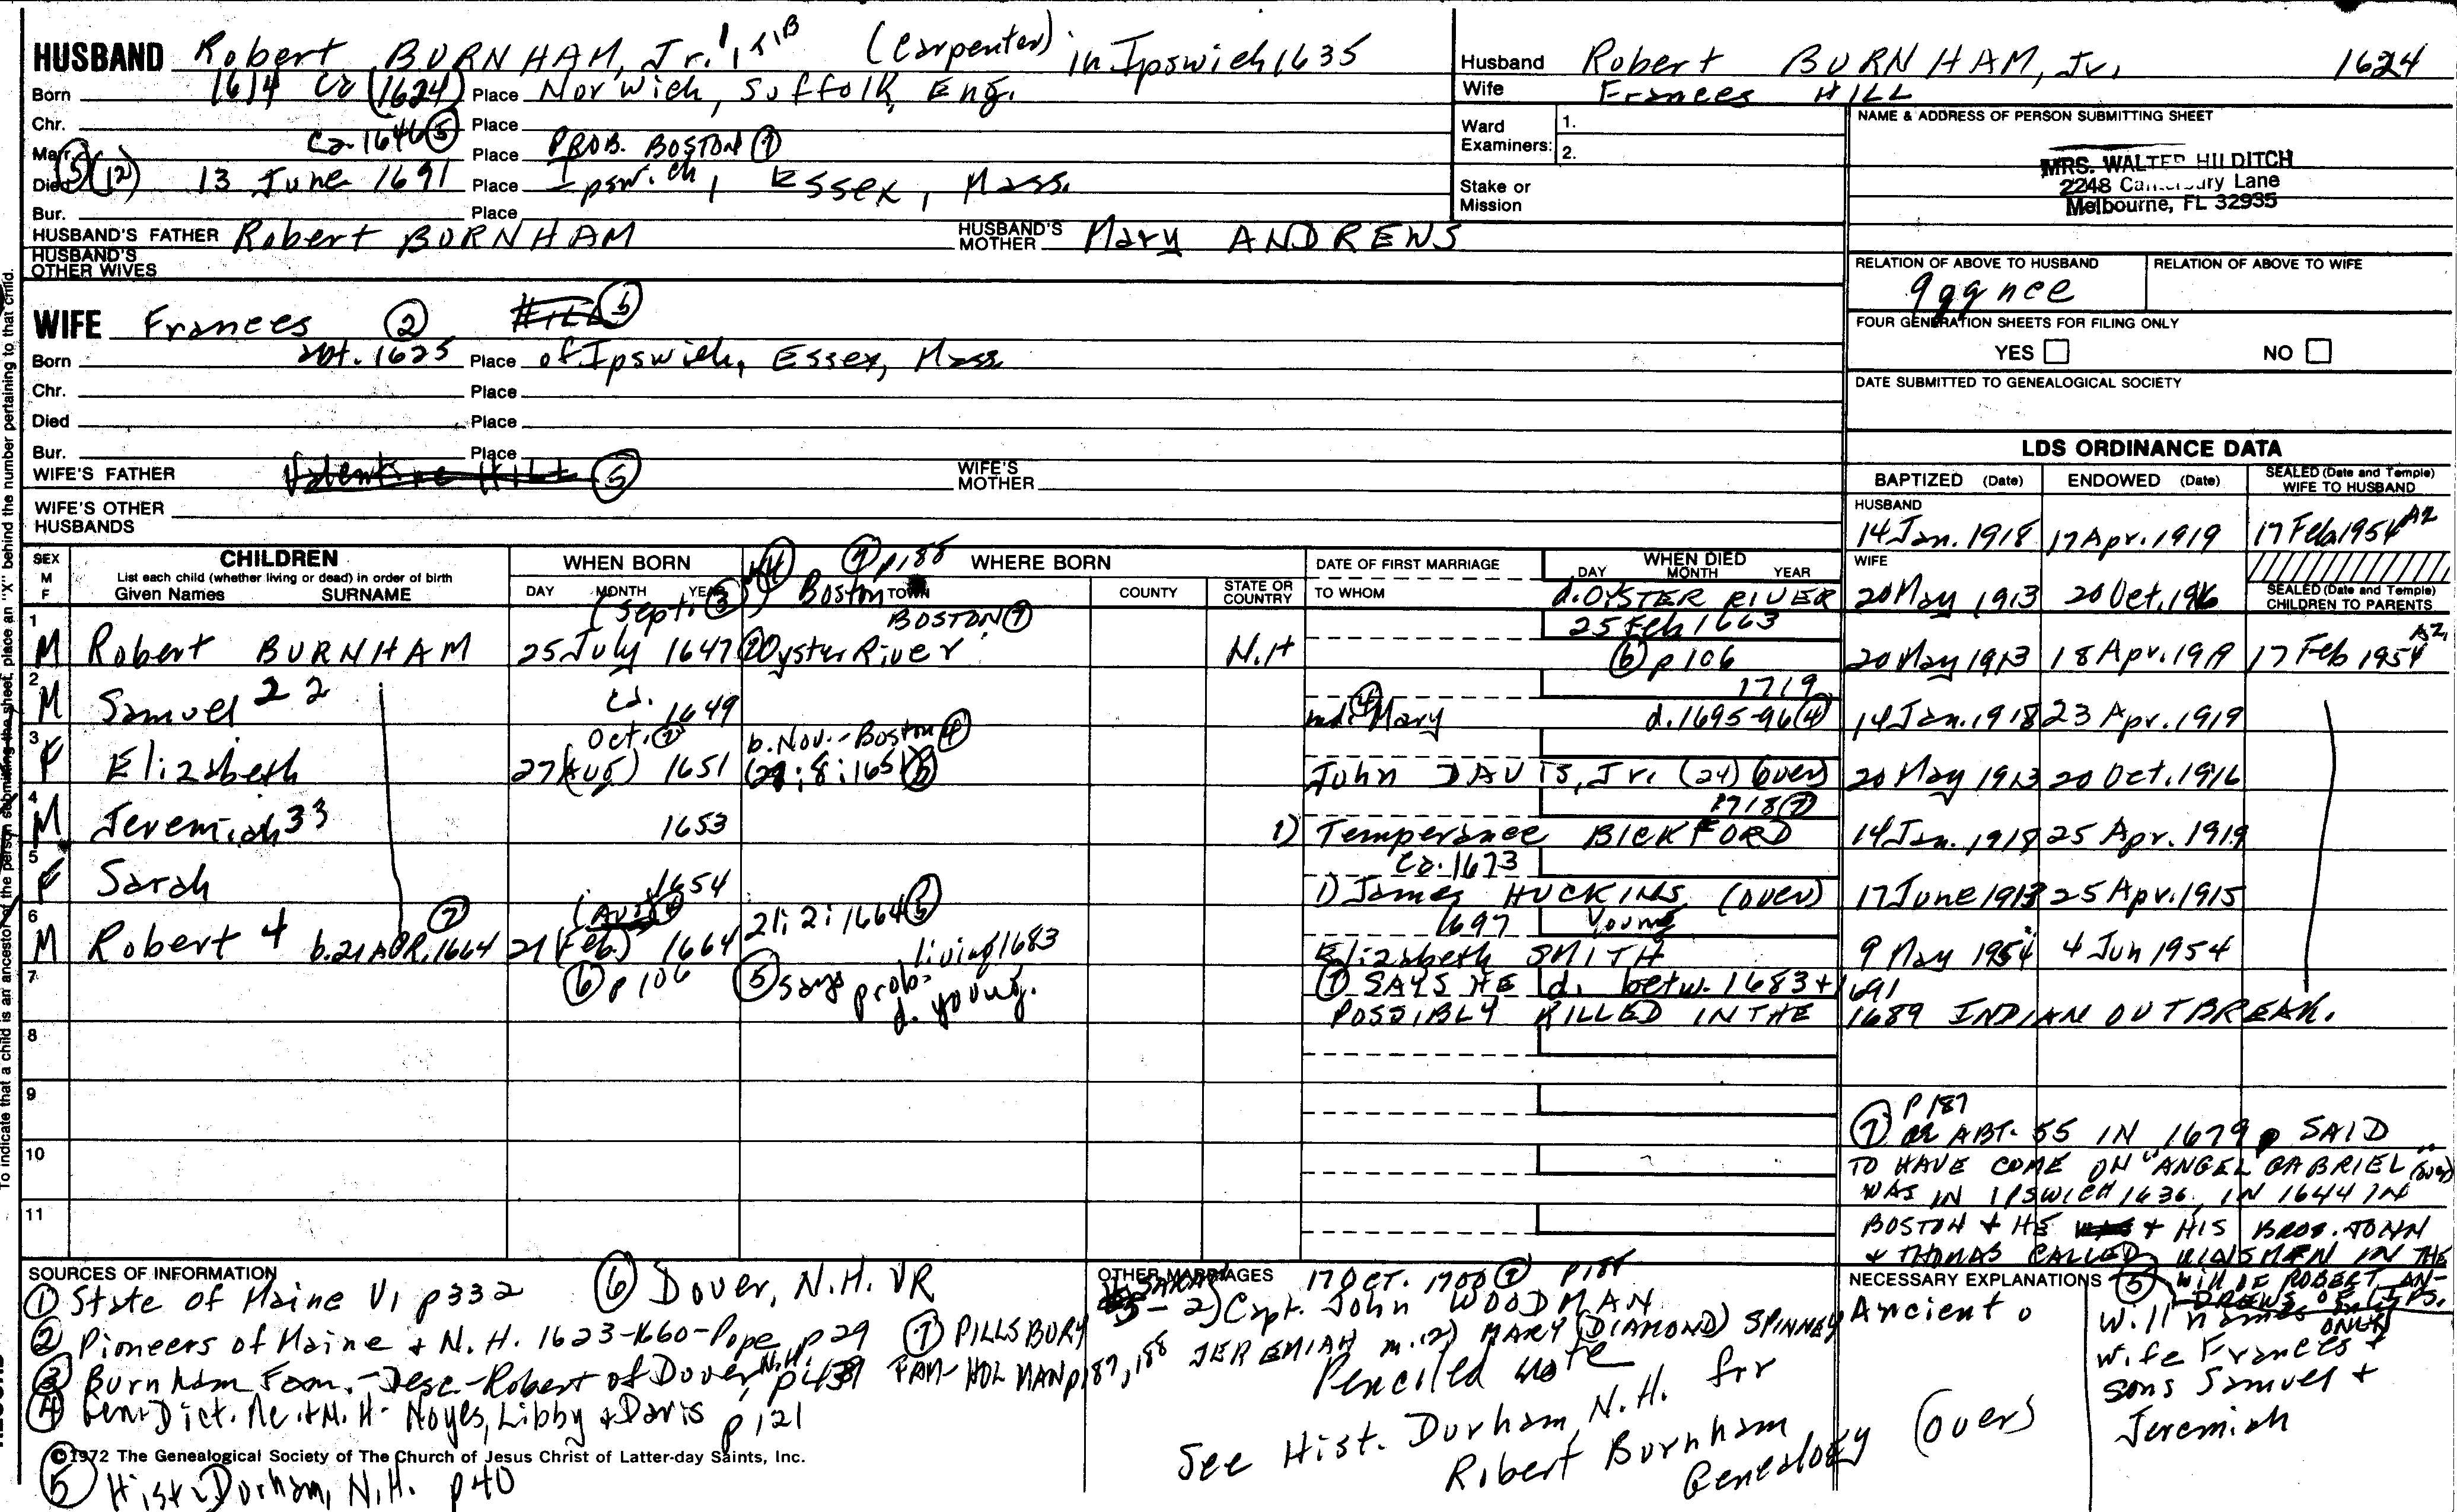 HUSBAND Robert BURNHAM, Jr. (Carpenter) in Ipswich 1635
Born 1614 ca (1624) Place Norwich, Suffolk, Eng.
Chr. Place
Marr. ca. 1646 (5) Place PROB. BOSTON (7)
Died (5)(12) 13 June 1691 Place Ipswich, Essex, Mass.
Bur. Place
HUSBAND'S FATHER Robert BURNHAM HUSBAND'S MOTHER Mary ANDREWS
HUSBAND'S OTHER WIVES
WIFE Frances (2) HILL (5)
Born abt. 1625 Place of Ipswich, Essex, Mass.
Chr. Place
Died Place
Bur. Place
WIFE'S FATHER Valentine Hill (5) WIFE'S MOTHER
WIFE'S OTHER HUSBANDS
Husband Robert BURNHAM, Jr. 1624
Wife Frances HILL
Ward Examiners: 1.
2.
Stake or Mission
NAME & ADDRESS OF PERSON SUBMITTING SHEET
MRS. WALTER HILDITCH
2248 Canterbury Lane
Melbourne, FL 32935
RELATION OF ABOVE TO HUSBAND RELATION OF ABOVE TO WIFE
9gg nce
FOUR GENERATION SHEETS FOR FILING ONLY
YES NO
DATE SUBMITTED TO GENEALOGICAL SOCIETY
LDS ORDINANCE DATA
BAPTIZED (Date) ENDOWED (Date) SEALED (Date and Temple) WIFE TO HUSBAND
HUSBAND
14 Jan. 1918 17 Apr. 1919 17 Feb 1954 AZ
WIFE
20 May 1913 20 Oct. 1916 SEALED (Date and Temple) CHILDREN TO PARENTS
SEX M F CHILDREN List each child (whether living or dead) in order of birth Given Names SURNAME
WHEN BORN DAY MONTH YEAR
WHERE BORN TOWN COUNTY STATE OR COUNTRY
DATE OF FIRST MARRIAGE TO WHOM
WHEN DIED DAY MONTH YEAR
(7) p188
(Sept. (3)) (4) Boston d. OYSTER RIVER
BOSTON (7) 25 Feb 1663
1 M Robert BURNHAM 25 July 1647 (2) Oyster River N.H (6) p 106 20 May 1913 18 Apr. 1919 17 Feb 1954 AZ
2 M Samuel 22 ca. 1649 md. (4) Mary 1719 d. 1695-96 (4) 14 Jan. 1918 23 Apr. 1919
Oct. (2) b. Nov. - Boston (4)
3 F Elizabeth 27 (Aug) 1651 (27:8:1651) (5) John DAVIS, Jr. (24) (over) 20 May 1913 20 Oct. 1916
4 M Jeremiah 33 1653 1) Temperance BICKFORD 1718 (7) 14 Jan. 1918 25 Apr. 1919
ca. 1673
5 F Sarah 1654 1) James HUCKINS (over) 17 June 1913 25 Apr. 1915
(7) 21:2:1664 (5) 1697 Young
6 M Robert 4 b. 21 APR. 1664 21 (Feb) 1664 living 1683 Elizabeth SMITH 9 May 1954 4 Jun 1954
7 (6) p 106 (5) says prob. d. young. (7) SAYS HE d. betw. 1683 + 1691
POSSIBLY KILLED IN THE 1689 INDIAN OUTBREAK.
8
9
10
11
(7) P 187
OR ABT. 55 IN 1679 SAID
TO HAVE COME ON "ANGEL GABRIEL" (over)
WAS IN IPSWICH 1636, IN 1644 IN
BOSTON + HE + HIS BROS. JOHN
+ THOMAS CALLED KINSMEN IN THE
WILL OF ROBERT ANDREWS OF IPS.
SOURCES OF INFORMATION
(1) State of Maine V1 p332
(2) Pioneers of Maine + N.H. 1623-1660-Pope, p 29
(3) Burnham Fam.-Desc-Robert of Dover, N.H. p 439
(4) Gen. Dict. Me. + N.H. - Noyes, Libby + Davis p 121
(5) Hist. Durham, N.H. p 40
(6) Dover, N.H. VR
(7) PILLSBURY FAM- HOLMAN p187, 188
©1972 The Genealogical Society of The Church of Jesus Christ of Latter-day Saints, Inc.
OTHER MARRIAGES
SARAH 17 OCT. 1700 (7) P188
5 - 2) Capt. John WOODMAN
JEREMIAH m. (2) MARY (DIAMOND) SPINNEY
Pencilled note
See Hist. Durham, N.H. for
Robert Burnham
Genealogy
NECESSARY EXPLANATIONS
Ancient
(over)
(5) Will names only
wife Frances +
sons Samuel +
Jeremiah
To indicate that a child is an ancestor of the person submitting the sheet, place an "X" behind the number pertaining to that child.